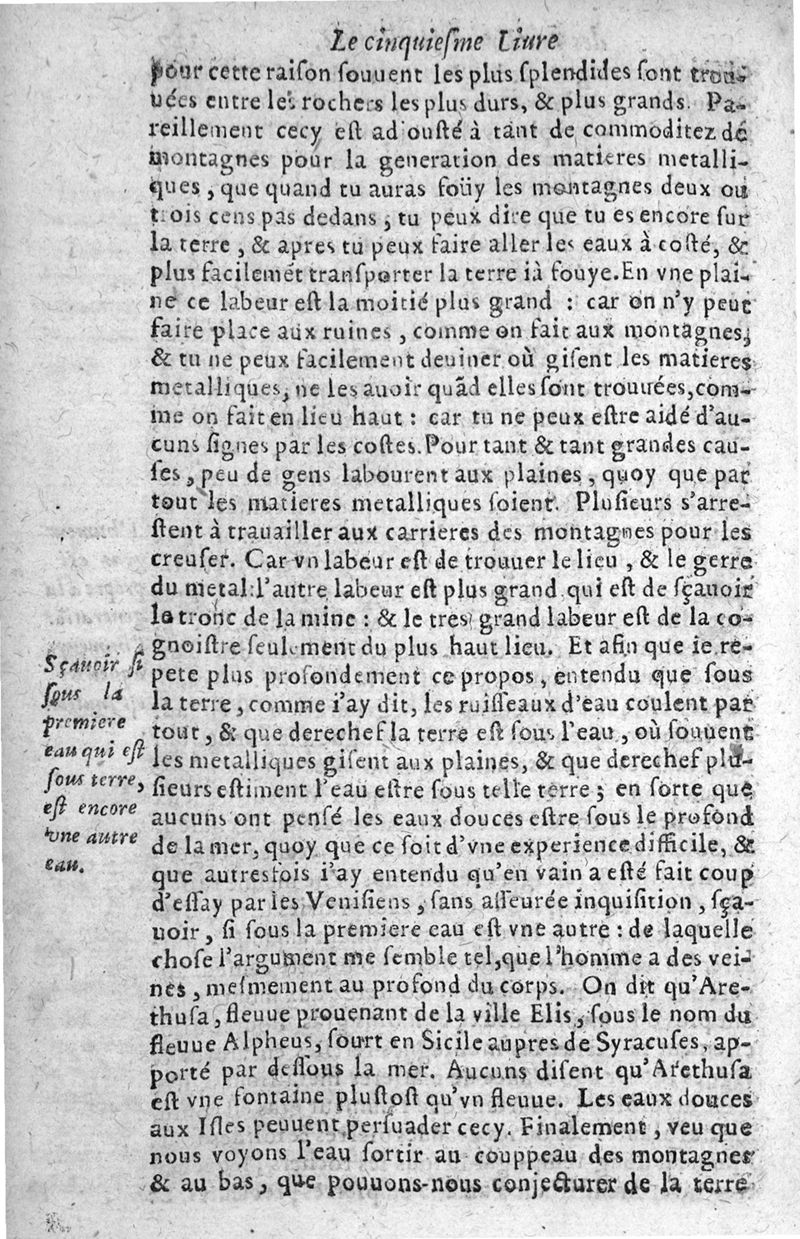 Le cinquieſme Liure
pour cette raiſon ſouuent les plus ſplendides ſont trou-
uées entre les rochers les plus durs, & plus grands. Pa-
reillement cecy eſt adiouſté à tant de commoditez de
montagnes pour la generation des matieres metalli-
ques, que quand tu auras foüy les montagnes deux ou
trois cens pas dedans, tu peux dire que tu es encore ſur
la terre, & apres tu peux faire aller les eaux à coſté, &
plus facilemét tranſporter la terre ià fouye. En vne plai-
ne ce labeur eſt la moitié plus grand : car on n'y peut
faire place aux ruines, comme on fait aux montagnes,
& tu ne peux facilement deuiner où giſent les matieres
metalliques, ne les auoir quãd elles ſont trouuées, com-
me on fait en lieu haut : car tu ne peux eſtre aidé d'au-
cuns ſignes par les coſtes. Pour tant & tant grandes cau-
ſes, peu de gens labourent aux plaines, quoy que par
tout les matieres metalliques ſoient. Pluſieurs s'arre-
ſtent à trauailler aux carrieres des montagnes pour les
creuſer. Car vn labeur eſt de trouuer le lieu, & le gerre
du metal : l'autre labeur eſt plus grand, qui eſt de ſçauoir
le tronc de la mine : & le tres grand labeur eſt de la co-
gnoiſtre ſeulement du plus haut lieu. Et afin que ie re-
pete plus profondement ce propos, entendu que ſous
la terre, comme i'ay dit, les ruiſſeaux d'eau coulent par
tout, & que derechef la terre eſt ſous l'eau, où ſouuent
les metalliques giſent aux plaines, & que derechef plu-
ſieurs eſtiment l'eau eſtre ſous telle terre ; en ſorte que
aucuns ont penſé les eaux douces eſtre ſous le profond
de la mer, quoy que ce ſoit d'vne experience difficile, &
que autresfois i'ay entendu qu'en vain a eſté fait coup
d'eſſay par les Veniſiens, ſans aſſeurée inquiſition, ſça-
uoir, ſi ſous la premiere eau eſt vne autre : de laquelle
choſe l'argument me ſemble tel, que l'homme a des vei-
nes, meſmement au profond du corps. On dit qu'Are-
thuſa, fleuue prouenant de la ville Elis, ſous le nom du
fleuue Alpheus, ſourt en Sicile aupres de Syracuſes, ap-
porté par deſſous la mer. Aucuns diſent qu'Arethuſa
eſt vne fontaine pluſtoſt qu'vn fleuue. Les eaux douces
aux Iſles peuuent perſuader cecy. Finalement, veu que
nous voyons l'eau ſortir au couppeau des montagnes
& au bas, que pouuons-nous conjecturer de la terre
Sçauoir ſi
ſous la
premiere
eau qui eſt
ſous terre,
eſt encore
vne autre
eau.